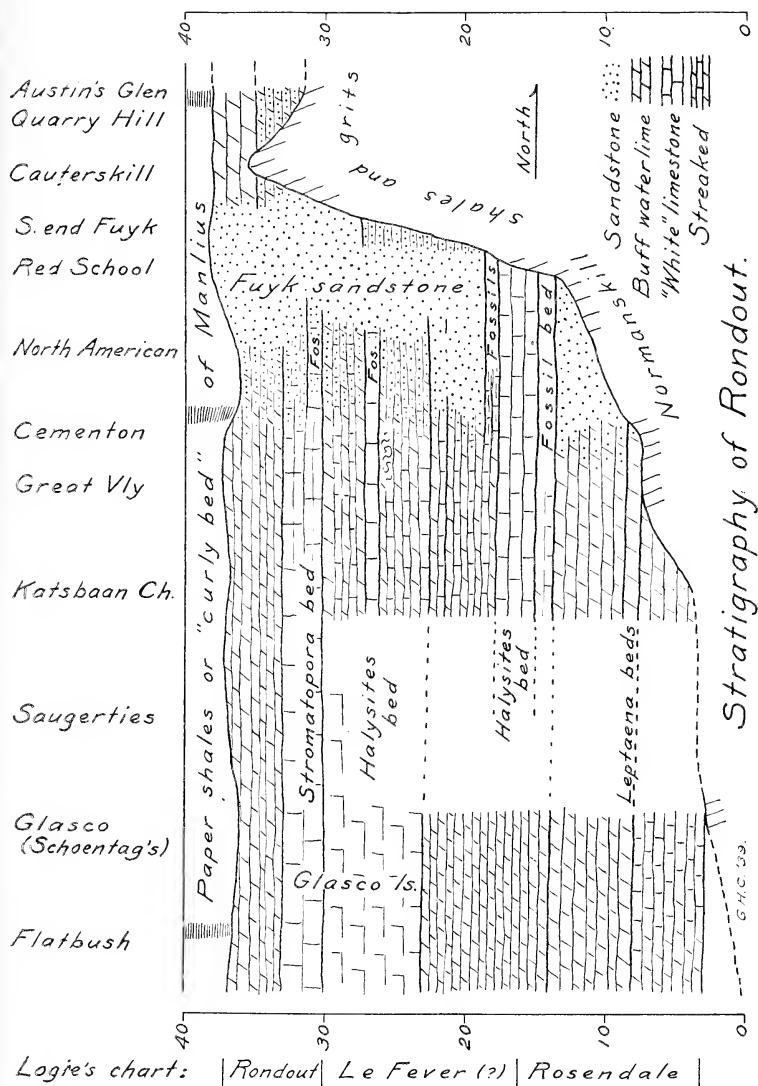 40 30 20 10. 0
Austin's Glen
Quarry Hill
Cauterskill
S. end Fuyk
Red School
North American
Cementon
Great Vly
Katsbaan Ch.
Saugerties
Glasco
(Schoentag's)
Flatbush
Paper shales or "curly bed" of Manlius
Fuyk sandstone
Fos.
Fos.
Fossils
Fossil bed
Stromatopora bed
Halysites
bed
Halysites
bed
Leptaena beds
Glasco ls.
Normanskill shales and grits
North
Sandstone
Buff waterlime
"White" limestone
Streaked
Stratigraphy of Rondout.
G.H.C. '39.
40 30 20 10 0
Logie's chart: |Rondout| Le Fever (?) | Rosendale |